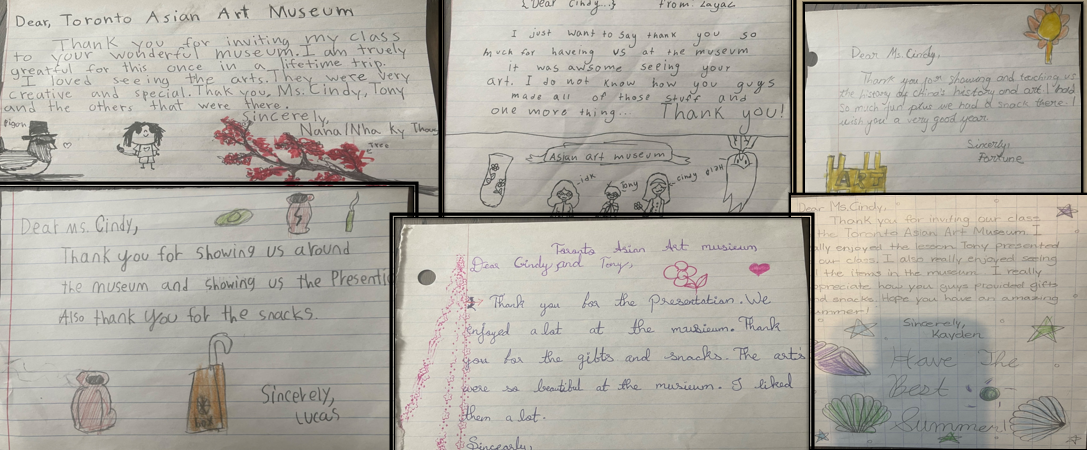 Dear, Toronto Asian Art Museum
Thank you for inviting my class
to your wonderful museum. I am truely
greatful for this once in a lifetime trip.
I loved seeing the arts. They were very
creative and special. Thak you, Ms. Cindy, Tony
and the others that were there.
Sincerely,
Naha/Nha Ky
Tree
{Dear Cindy...} from Zayac
I just want to say thank you so
much for haveing us at the museum
it was awsome seeing your
art. I do not know how you guys
made all of those stuff and
one more thing... Thank you!
Asian art museum
idk
Tony
cindy
Help
Dear Ms. Cindy,
Thank you for showing and teaching us
the history of China's history and art I had
so much fun plus we had a snack there! I
wish you a very good year
Sincerly,
Fortune
ART
Dear Ms. Cindy,
Thank you for showing us around
the museum and showing us the Presentic
Also thank you for the snacks.
Sincerely,
Lucas
Toronto Asian Art musieum
Dear Cindy and Tony,
Thank you for the Presentation. We
enjoyed alot at the musieum. Thank
you for the gifts and snacks. The arts
were so beautiful at the musieum. I liked
them a lot.
Sincearly,
Dear Ms. Cindy,
Thank you for inviting our class
the Toronto Asian Art Museum. I
ally enjoyed the lesson Tony presented
our class. I also really enjoyed seeing
the items in the museum. I really
preciate how you guys provided gifts
d snacks. Hope you have an amazing
ummer!
Sincerely,
Kayden
Have The
Best
Summer!